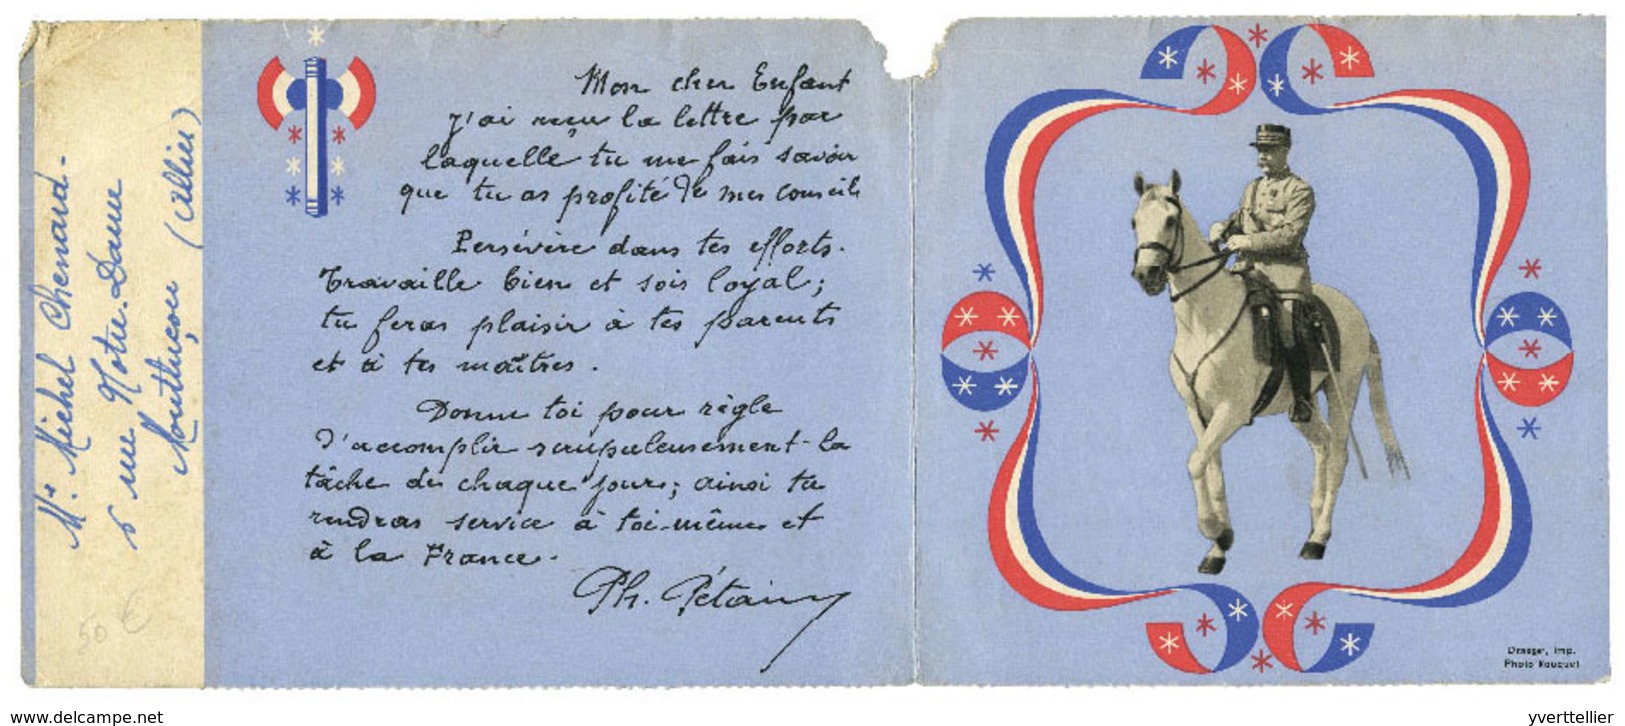 Mr. Michel Chenard.
6 rue Notre-Dame
Montluçon (Allier)
50 €
Mon cher Enfant
j'ai reçu la lettre par
laquelle tu me fais savoir
que tu as profité de mes conseils
Persévère dans tes efforts.
Travaille bien et sois loyal;
tu feras plaisir à tes parents
et à tes maîtres.
Donne toi pour règle
d'accomplir scrupuleusement la
tâche de chaque jour; ainsi tu
rendras service à toi-même et
à la France.
Ph. Pétain
Draeger, imp.
Photo Rouquet
www.delcampe.net
yverttellier